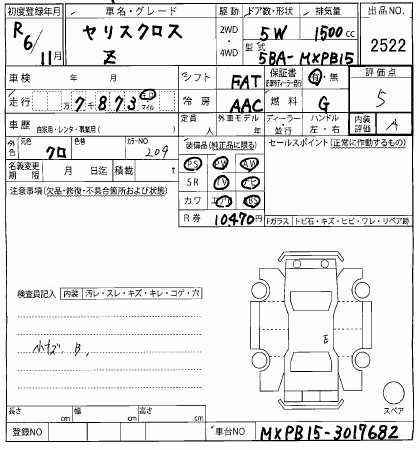 初度登録年月 車名・グレード 駆動 ドア数・形状 排気量 出品NO.
R6/11月 ヤリスクロス Z 2WD・4WD 5W 1500cc 2522
型式 5BA-MXPB15
車検 年 月 シフト FAT 保証書 有・無 評価点
走行 万7千873 km マイル 冷房 AAC 燃料 G 5
車歴 自家用・レンタ・事業用( ) 定員 人 外車モデル 年 ディーラー・並行 ハンドル 左・右 内装評価 A
外色 元色 クロ 色替 カラーNO 209 装備品(純正品に限る) セールスポイント(正常に作動するもの)
PS PW AW
名義変更期限 月 日迄 積載 t SR TV
注意事項(欠品・修復・不具合箇所および状態) カワ
R券 10,470円 Fガラス トビ石・キズ・ヒビ・ワレ・リペア跡
検査員記入 内装 汚レ・スレ・キズ・キレ・コゲ・穴
小キズ B, E
スペア
長さ cm 幅 cm 高さ cm
登録NO 車台NO MXPB15-3017682